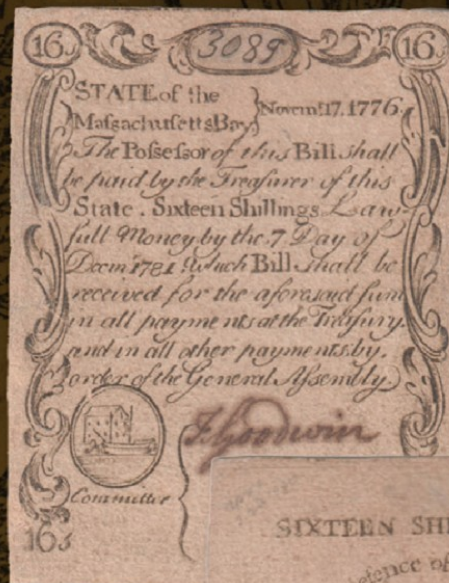 16s 3089 16s
STATE of the
Massachusetts Bay Novemr. 17. 1776.
The Possessor of this Bill shall
be paid by the Treasurer of this
State . Sixteen Shillings Law-
full Money by the 7 Day of
Decm 1781 Which Bill shall be
received for the aforesaid sum
in all payments at the Treasury.
and in all other payments by.
order of the General Assembly.
J Goodwin
Committee
16s
SIXTEEN SHI
efence of